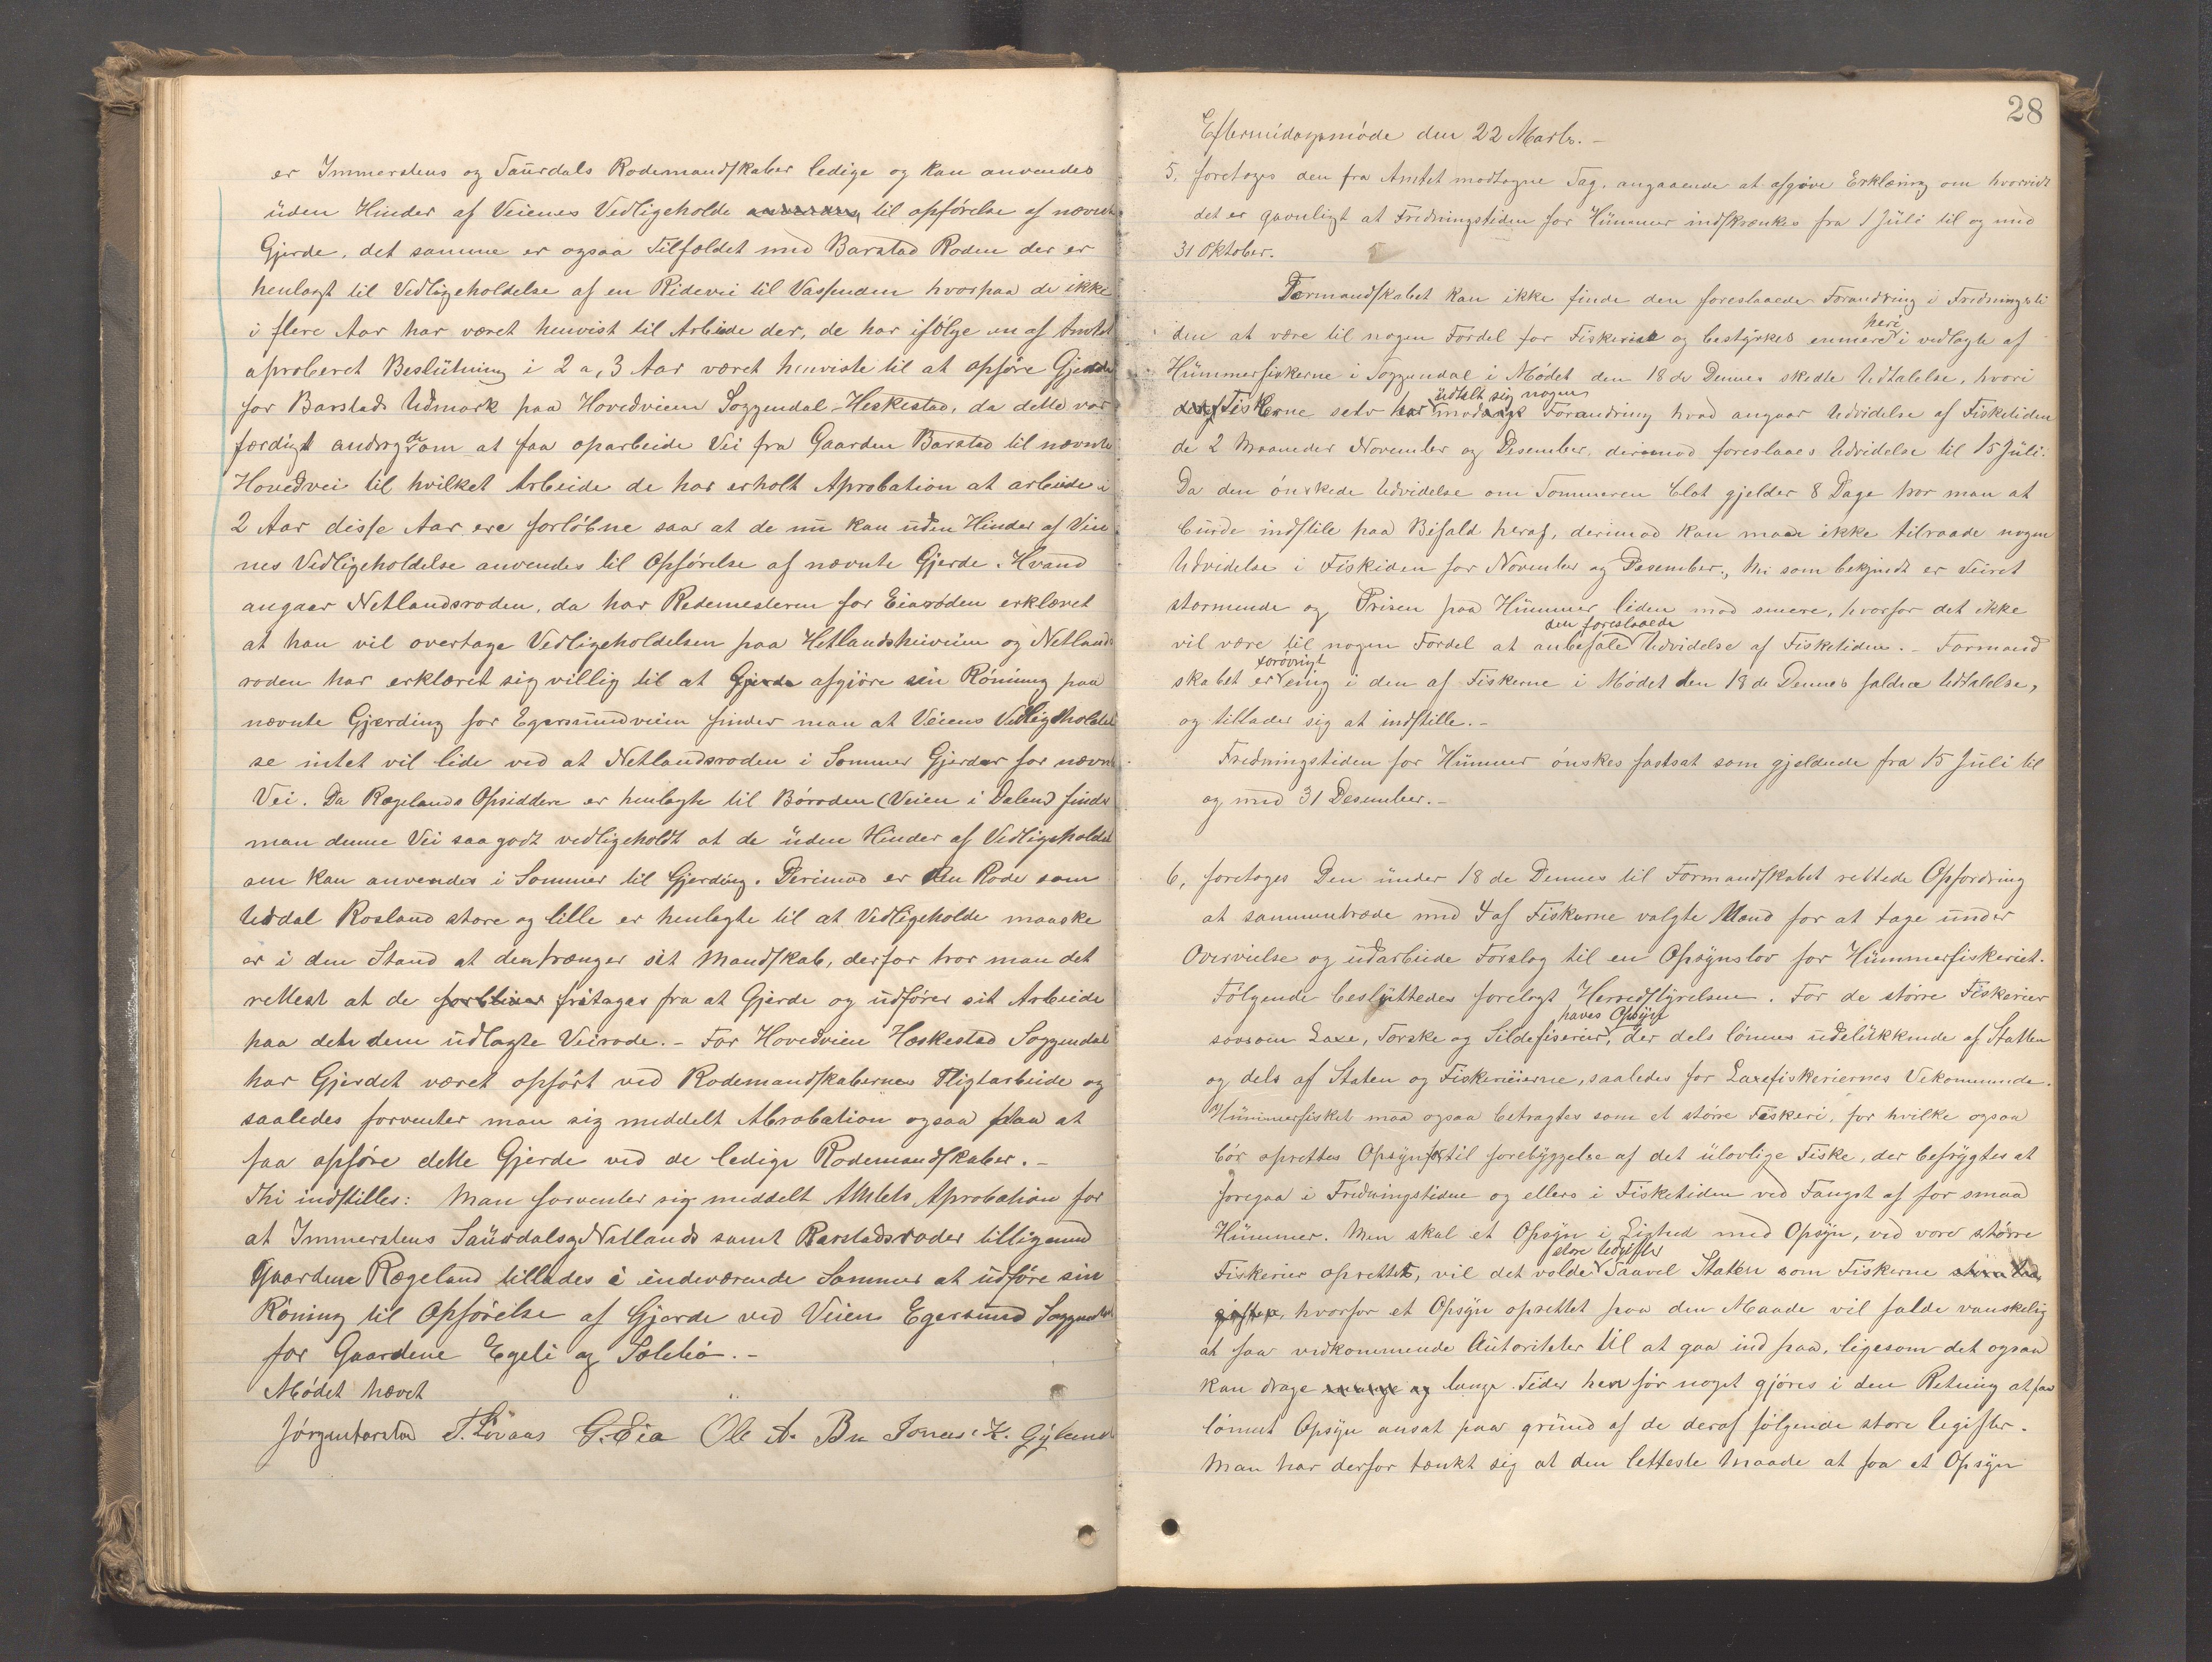 er Immerstens og Saurdals Rodemandskaber ledige og kan anvendes
uden Hinder af Veienes Vedligeholde til opførelse af nævnte
Gjerde, det samme er ogsaa Tilfældet med Barstad Roden der er
henlagt til Vedligeholdelse af en Ridevei til Vassenden hvorpaa de ikke
i flere Aar har været henvist til Arbeide der, de har ifølge en af Amtet
aproberet Beslutning i 2 a, 3 Aar været henviste til at opføre Gjerde
for Barstads Udmark paa Hovedveien Soggendal-Heskestad, da dette var
færdigt androg de om at faa oparbeide Vei fra Gaarden Barstad til nævnte
Hovedvei til hvilket Arbeide de har erholt Aprobation at arbeide i
2 Aar disse Aar ere forløbne saa at de nu kan uden Hinder af Veie
nes Vedligeholdelse anvendes til Opførelse af nævnte Gjerde. Hvand
angaar Netlandsroden, da har Rodemesteren for Eiaroden erklæret
at han vil overtage Vedligeholdelsen paa Hetlandsheiveien og Netlands
roden har erklæret sig villig til at afgjøre sin Roning paa
nævnte Gjerding for Egersundveien finder man at Veiens Vedligeholdel
se intet vil lide ved at Netlandsroden i Sommer Gjerder for nævnte
Vei. Da Rægelands Opsiddere er henlagte til Børoden (Veien i Dalen) finder
man denne Vei saa godt vedligeholdt at de uden Hinder af Vedligeholdel
sen kan anvendes i Sommer til Gjerding. Derimod er den Rode som
Urdal Rosland store og lille er henlagte til at Vedligeholde maaske
er i den Stand at den trænger sit Mandskab, derfor tror man det
rettest at de fritages fra at Gjerde og udfører sit Arbeide
paa det dem udlagte Veirode. - For Hovedveien Heskestad Soggendal
har Gjerdet været opført ved Rodemandskabernes Pligtarbeide og
saaledes forventer man sig meddelt Abrobation ogsaa paa at
faa opføre dette Gjerde ved de ledige Rodemandskaber. -
Thi indstilles: Man forventer sig meddelt Amtets Aprobation for
at Immerstens Saurdals og Netlands samt Barstadsroder tilligemed
Gaardene Rægeland tillades i indeværende Sommer at udføre sin
Roning til Opførelse af Gjerde ved Veien Egersund Soggendal
for Gaardene Egeli og Solbiø. -
Mødet hævet
Jørgen Barstad T. Løvaas G. Eia Ole A. Bø Jonas K. Gyland
28
Eftermidagsmøde den 22 Marts. -
5, foretoges den fra Amtet modtagne Sag, angaaende at afgive Erklæring om hvorvidt
det er gavnligt at Fredningstiden for Hummer indskrænkes fra 1 Juli til og med
31 Oktober.
Formandskabet kan ikke finde den foreslaaede Forandring i Fredningsti
den at være til nogen Fordel for Fiskeriet og bestyrkes enmere heri i vedlagte af
Hummerfiskerne i Soggendal i Mødet den 18 de Dennes skedte Udtalelse, hvori
Fiskerne selv har udtalt sig mod nogen Forandring hvad angaar Udvidelse af Fisketiden
de 2 Maaneder November og Desember, derimod foreslaaes Udvidelse til 15 Juli.
Da den ønskede Udvidelse om Sommeren blot gjelder 8 Dage tror man at
burde indstile paa Bifald heraf, derimod kan man ikke tilraade nogen
Udvidelse i Fiskiden for November og Desember, thi som bekjendt er Veiret
stormende og Prisen paa Hummer liden med smere, hvorfor det ikke
vil være til nogen Fordel at anbefale den foreslaaede Udvidelse af Fisketiden. - Formand
skabet er forøvrigt enig i den af Fiskerne i Mødet den 18 de Dennes faldne Udtalelse,
og tillader sig at indstille. -
Fredningstiden for Hummer ønskes fastsat som gjeldende fra 15 Juli til
og med 31 Desember. -
6, foretoges Den under 18 de Dennes til Formandskabet rettede Opfordring
at sammentræde med 4 af Fiskerne valgte Mænd for at tage under
Overvielse og udarbeide Forslag til en Opsynslov for Hummerfiskeriet.
Følgende besluttedes forelagt Herredstyrelsen. For de større Fiskerier
saasom Laxe, Torske og Sildefiserier, haves Opsyn der dels lønnes udelukkende af Statten
og dels af Staten og Fiskerieierne, saaledes for Laxefiskeriernes Vekommende.
Hummerfisket maa ogsaa betragtes som et større Feskeri, for hvilke ogsaa
bør oprettes Opsyn til forebyggelse af det ulovlige Fiske, der befrygtes at
foregaa i Fredningstiden og ellers i Fisketiden ved Fangst af for smaa
Hummer. Men skal et Opsyn i Lighed med Opsyn, ved vore større
Fiskerier oprettes, vil det volde store Udgifter saavel Statten som Fiskerne
hvorfor et Opsyn oprettet paa den Maade vil falde vanskelig
at faa vedkommende Autoriteter til at gaa ind paa, ligesom det ogsaa
kan drage lange Tider hen før noget gjøres i den Retning at faa
lønnet Opsyn ansat paa grund af de deraf følgende store Ugifter.
Man har derfor tænkt sig at den letteste Maade at faa et Opsyn